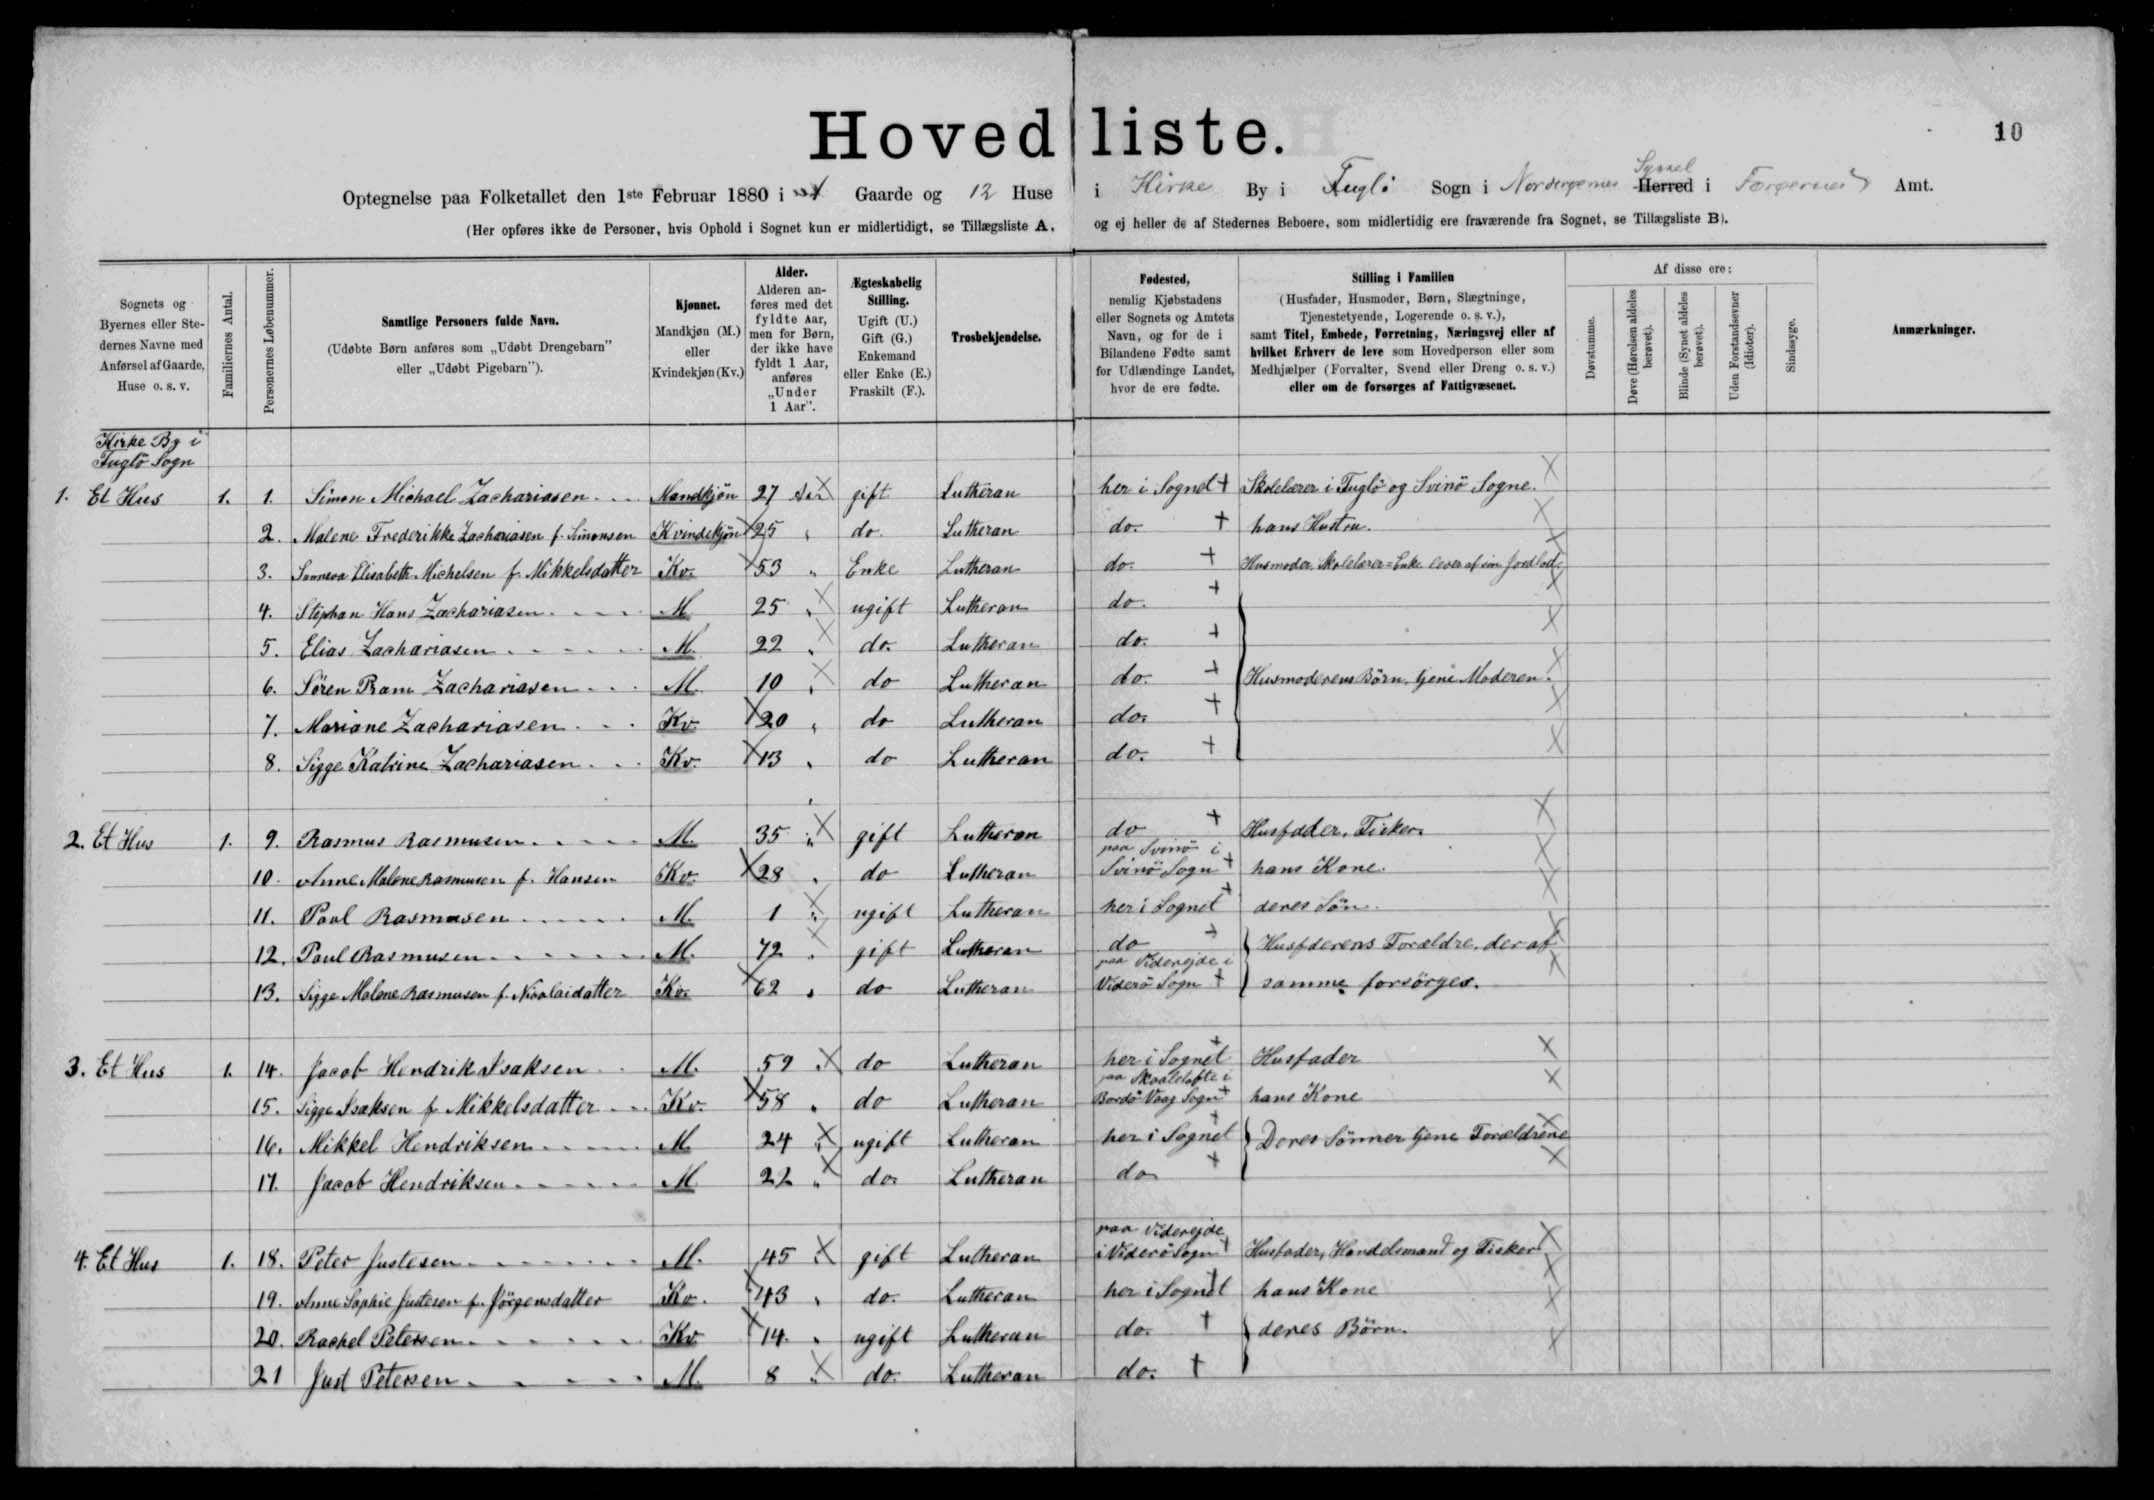 Hovedliste.
10
Optegnelse paa Folketallet den 1ste Februar 1880 i Gaarde og 12 Huse i Kirke By i Fuglö Sogn i Norderøernes Syssel Herred i Færøernes Amt.
(Her opføres ikke de Personer, hvis Ophold i Sognet kun er midlertidigt, se Tillægsliste A, og ej heller de af Stedernes Beboere, som midlertidig ere fraværende fra Sognet, se Tillægsliste B).
Sognets og Byernes eller Stedernes Navne med Anførsel af Gaarde, Huse o. s. v.
Familiernes Antal.
Personernes Løbenummer.
Samtlige Personers fulde Navn.
(Udøbte Børn anføres som „Udøbt Drengebarn" eller „Udøbt Pigebarn").
Kjønnet.
Mandkjøn (M.) eller Kvindekjøn (Kv.)
Alder.
Alderen anføres med det fyldte Aar, men for Børn, der ikke have fyldt 1 Aar, anføres „Under 1 Aar".
Ægteskabelig Stilling.
Ugift (U.) Gift (G.) Enkemand eller Enke (E.) Fraskilt (F.).
Trosbekjendelse.
Fødested,
nemlig Kjøbstadens eller Sognets og Amtets Navn, og for de i Bilandene Fødte samt for Udlændinge Landet, hvor de ere fødte.
Stilling i Familien
(Husfader, Husmoder, Børn, Slægtninge, Tjenestetyende, Logerende o. s. v.),
samt Titel, Embede, Forretning, Næringsvej eller af hvilket Erhverv de leve som Hovedperson eller som Medhjælper (Forvalter, Svend eller Dreng o. s. v.) eller om de forsørges af Fattigvæsenet.
Af disse ere:
Døvstumme.
Døve (Hørelsen aldeles berøvet).
Blinde (Synet aldeles berøvet).
Uden Forstandsevner (Idioter).
Sindssyge.
Anmærkninger.
Kirke By i
Fuglö Sogn
1. Et Hus 1. 1. Simon Michael Zachariasen Mandkjön 27 Aar gift Lutheran her i Sognet + Skolelærer i Fuglö og Svinö Sogne.
2. Malene Frederikke Zachariasen f. Simonsen Kvindekjön 25 " do. Lutheran do. + hans Hustru.
3. Sunneva Elisabeth Michelsen f. Mikkelsdatter Kv. 53 " Enke Lutheran do. + Husmoder, Skolelærer=Enke lever af sin Jordlod.
4. Stephan Hans Zachariasen M 25 " ugift Lutheran do. +
5. Elias Zachariasen M. 22 " do. Lutheran do. +
6. Sören Pram Zachariasen M. 10 " do Lutheran do. + Husmoderens Börn, tjene Moderen.
7. Mariane Zachariasen Kv 20 " do Lutheran do. +
8. Sigge Katrine Zachariasen Kv. 13 " do Lutheran do. +
2. Et Hus 1. 9. Rasmus Rasmusen M. 35 " gift Lutheran do + Husfader. Fisker.
10. Anne Malene Rasmusen f. Hansen Kv. 28 " do Lutheran paa Svinö i Svinö Sogn + hans Kone.
11. Poul Rasmusen M. 1 " ugift Lutheran her i Sognet + deres Sön.
12. Poul Rasmusen M. 72 " gift Lutheran do + Husfderens Forældre, der af
13. Sigge Malene Rasmusen f. Nicolaidatter Kv. 62 " do Lutheran paa Viderejde i Viderö Sogn + samme forsörges.
3. Et Hus 1. 14. Jacob Hendrik Isaksen M. 59 " do Lutheran her i Sognet + Husfader
15. Sigge Isaksen f. Mikkelsdatter Kv. 58 " do Lutheran paa Skaaletofte i Bordö Vaag Sogn + hans Kone
16. Mikkel Hendriksen M 24 " ugift Lutheran her i Sognet + Deres Sönner tjene Forældrene
17. Jacob Hendriksen M 22 " do. Lutheran do +
4. Et Hus 1. 18. Peter Justesen M. 45 " gift Lutheran paa Viderejde i Viderö Sogn + Husfader, Handelsmand og Fisker
19. Anne Sophie Justesen f. Jörgensdatter Kv. 43 " do. Lutheran her i Sognet + hans Kone
20. Rachel Petersen Kv 14. " ugift Lutheran do. + deres Börn.
21 Just Petersen M. 8 " do. Lutheran do. +